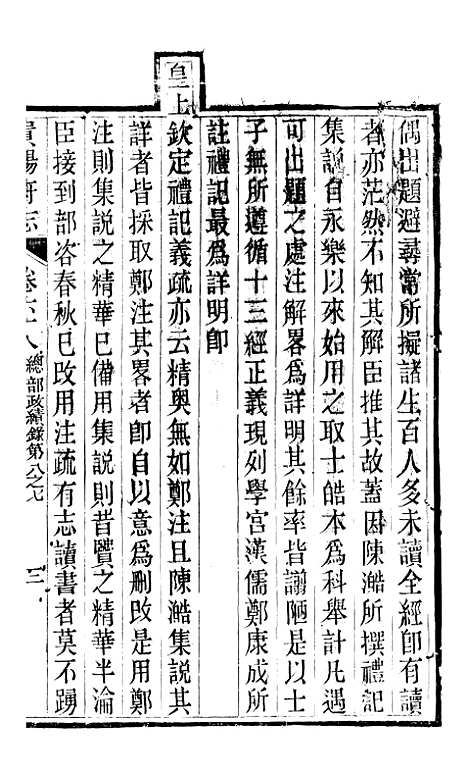 偶出題避尋常所擬諸生百人多未讀全經卽有讀
者亦茫然不知其解臣推其故蓋因陳澔所撰禮記
集說自永樂以來始用之取士皓本爲科舉計凡遇
可出題之處注解畧爲詳明其餘率皆譾陋是以士
子無所遵循十三經正義現列學宮漢儒鄭康成所
註禮記最爲詳明卽
皇上
欽定禮記義疏亦云精奧無如鄭注且陳澔集說其
詳者皆採取鄭注其畧者卽自以意爲刪改是用鄭
注則集說之精華已備用集說則昔賢之精華半淪
臣接到部咨春秋已改用注疏有志讀書者莫不踴
貴陽府志 卷六十八 總部政績錄第八之九 三